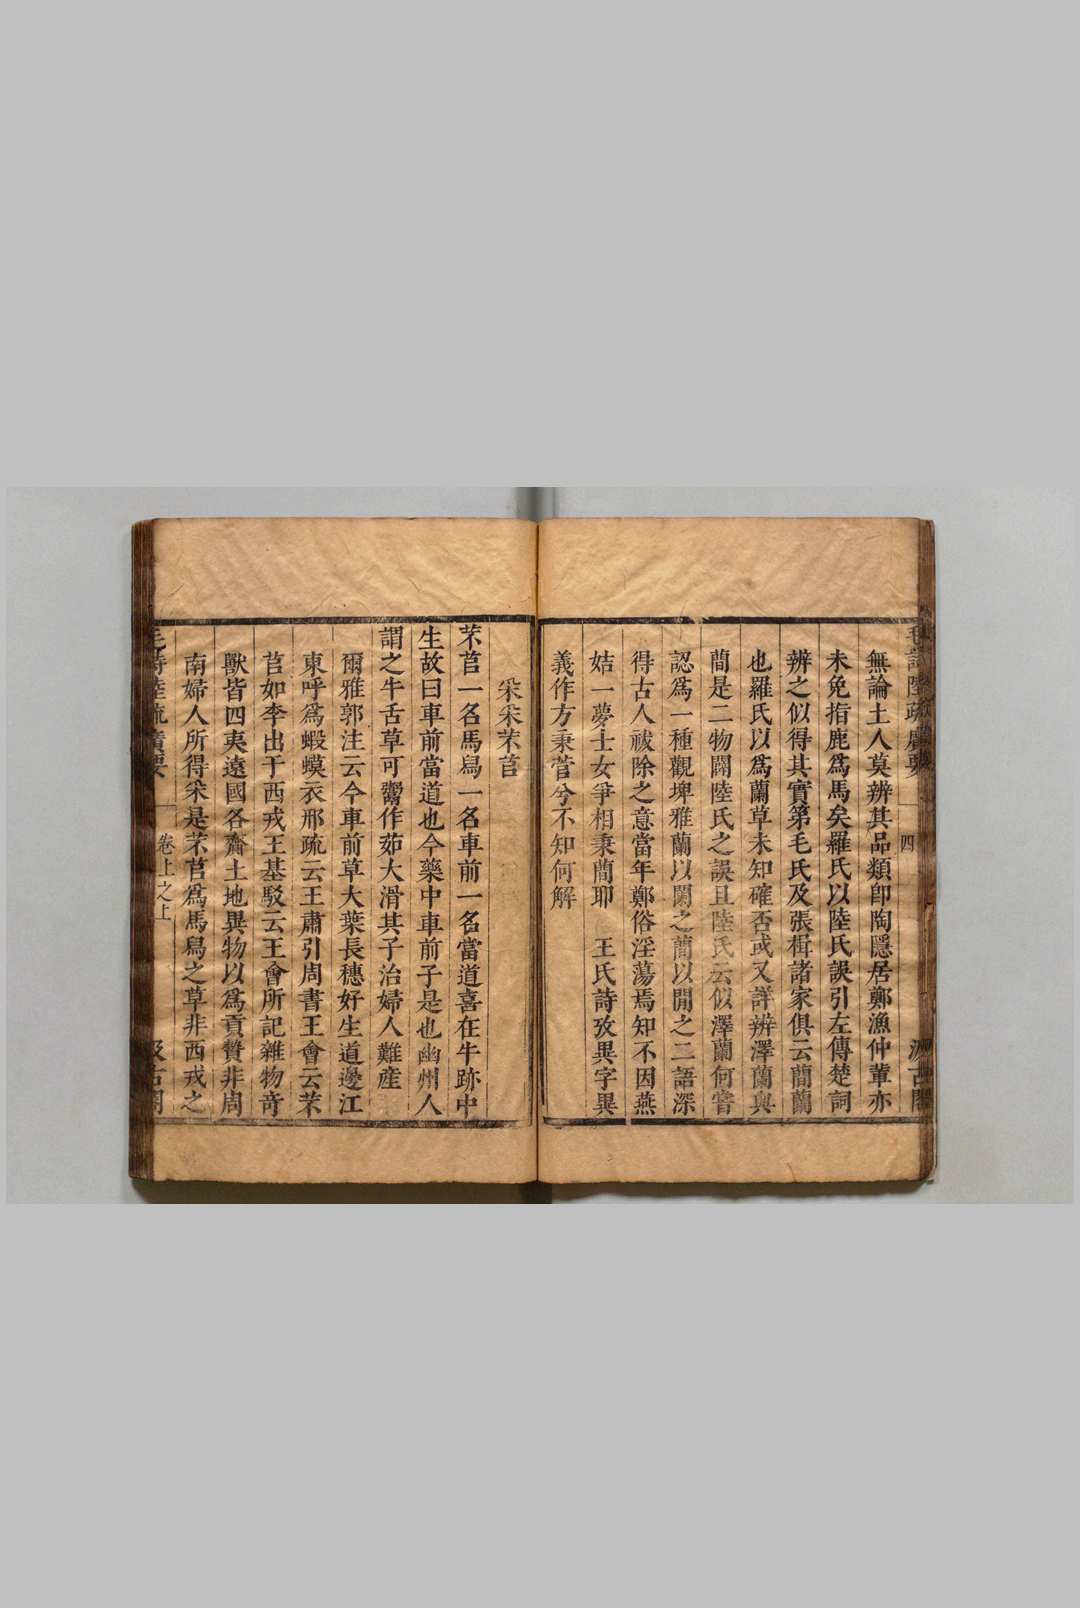 毛詩陸疏廣要
四
汲古閣
無論土人莫辨其品類卽陶隱居鄭漁仲輩亦
未免指鹿爲馬矣羅氏以陸氏誤引左傳楚詞
辨之似得其實第毛氏及張楫諸家俱云蕑蘭
也羅氏以爲蘭草未知確否或又詳辨澤蘭與
蕑是二物闢陸氏之誤且陸氏云似澤蘭何嘗
認爲一種觀埤雅蘭以闌之蕑以閒之二語深
得古人祓除之意當年鄭俗淫蕩焉知不因燕
姞一夢士女爭相秉蕑耶　王氏詩攷異字異
義作方秉菅兮不知何解
采采芣苢
芣苢一名馬舄一名車前一名當道喜在牛跡中
生故曰車前當道也今藥中車前子是也幽州人
謂之牛舌草可鬻作茹大滑其子治婦人難產
爾雅郭注云今車前草大葉長穗好生道邊江
東呼爲蝦蟆衣邢疏云王肅引周書王會云芣
苢如李出于西戎王基駁云王會所記雜物奇
獸皆四夷遠國各齎土地異物以爲貢贄非周
南婦人所得采是芣苢爲馬舄之草非西戎之
毛詩陸疏廣要
卷上之上
汲古閣